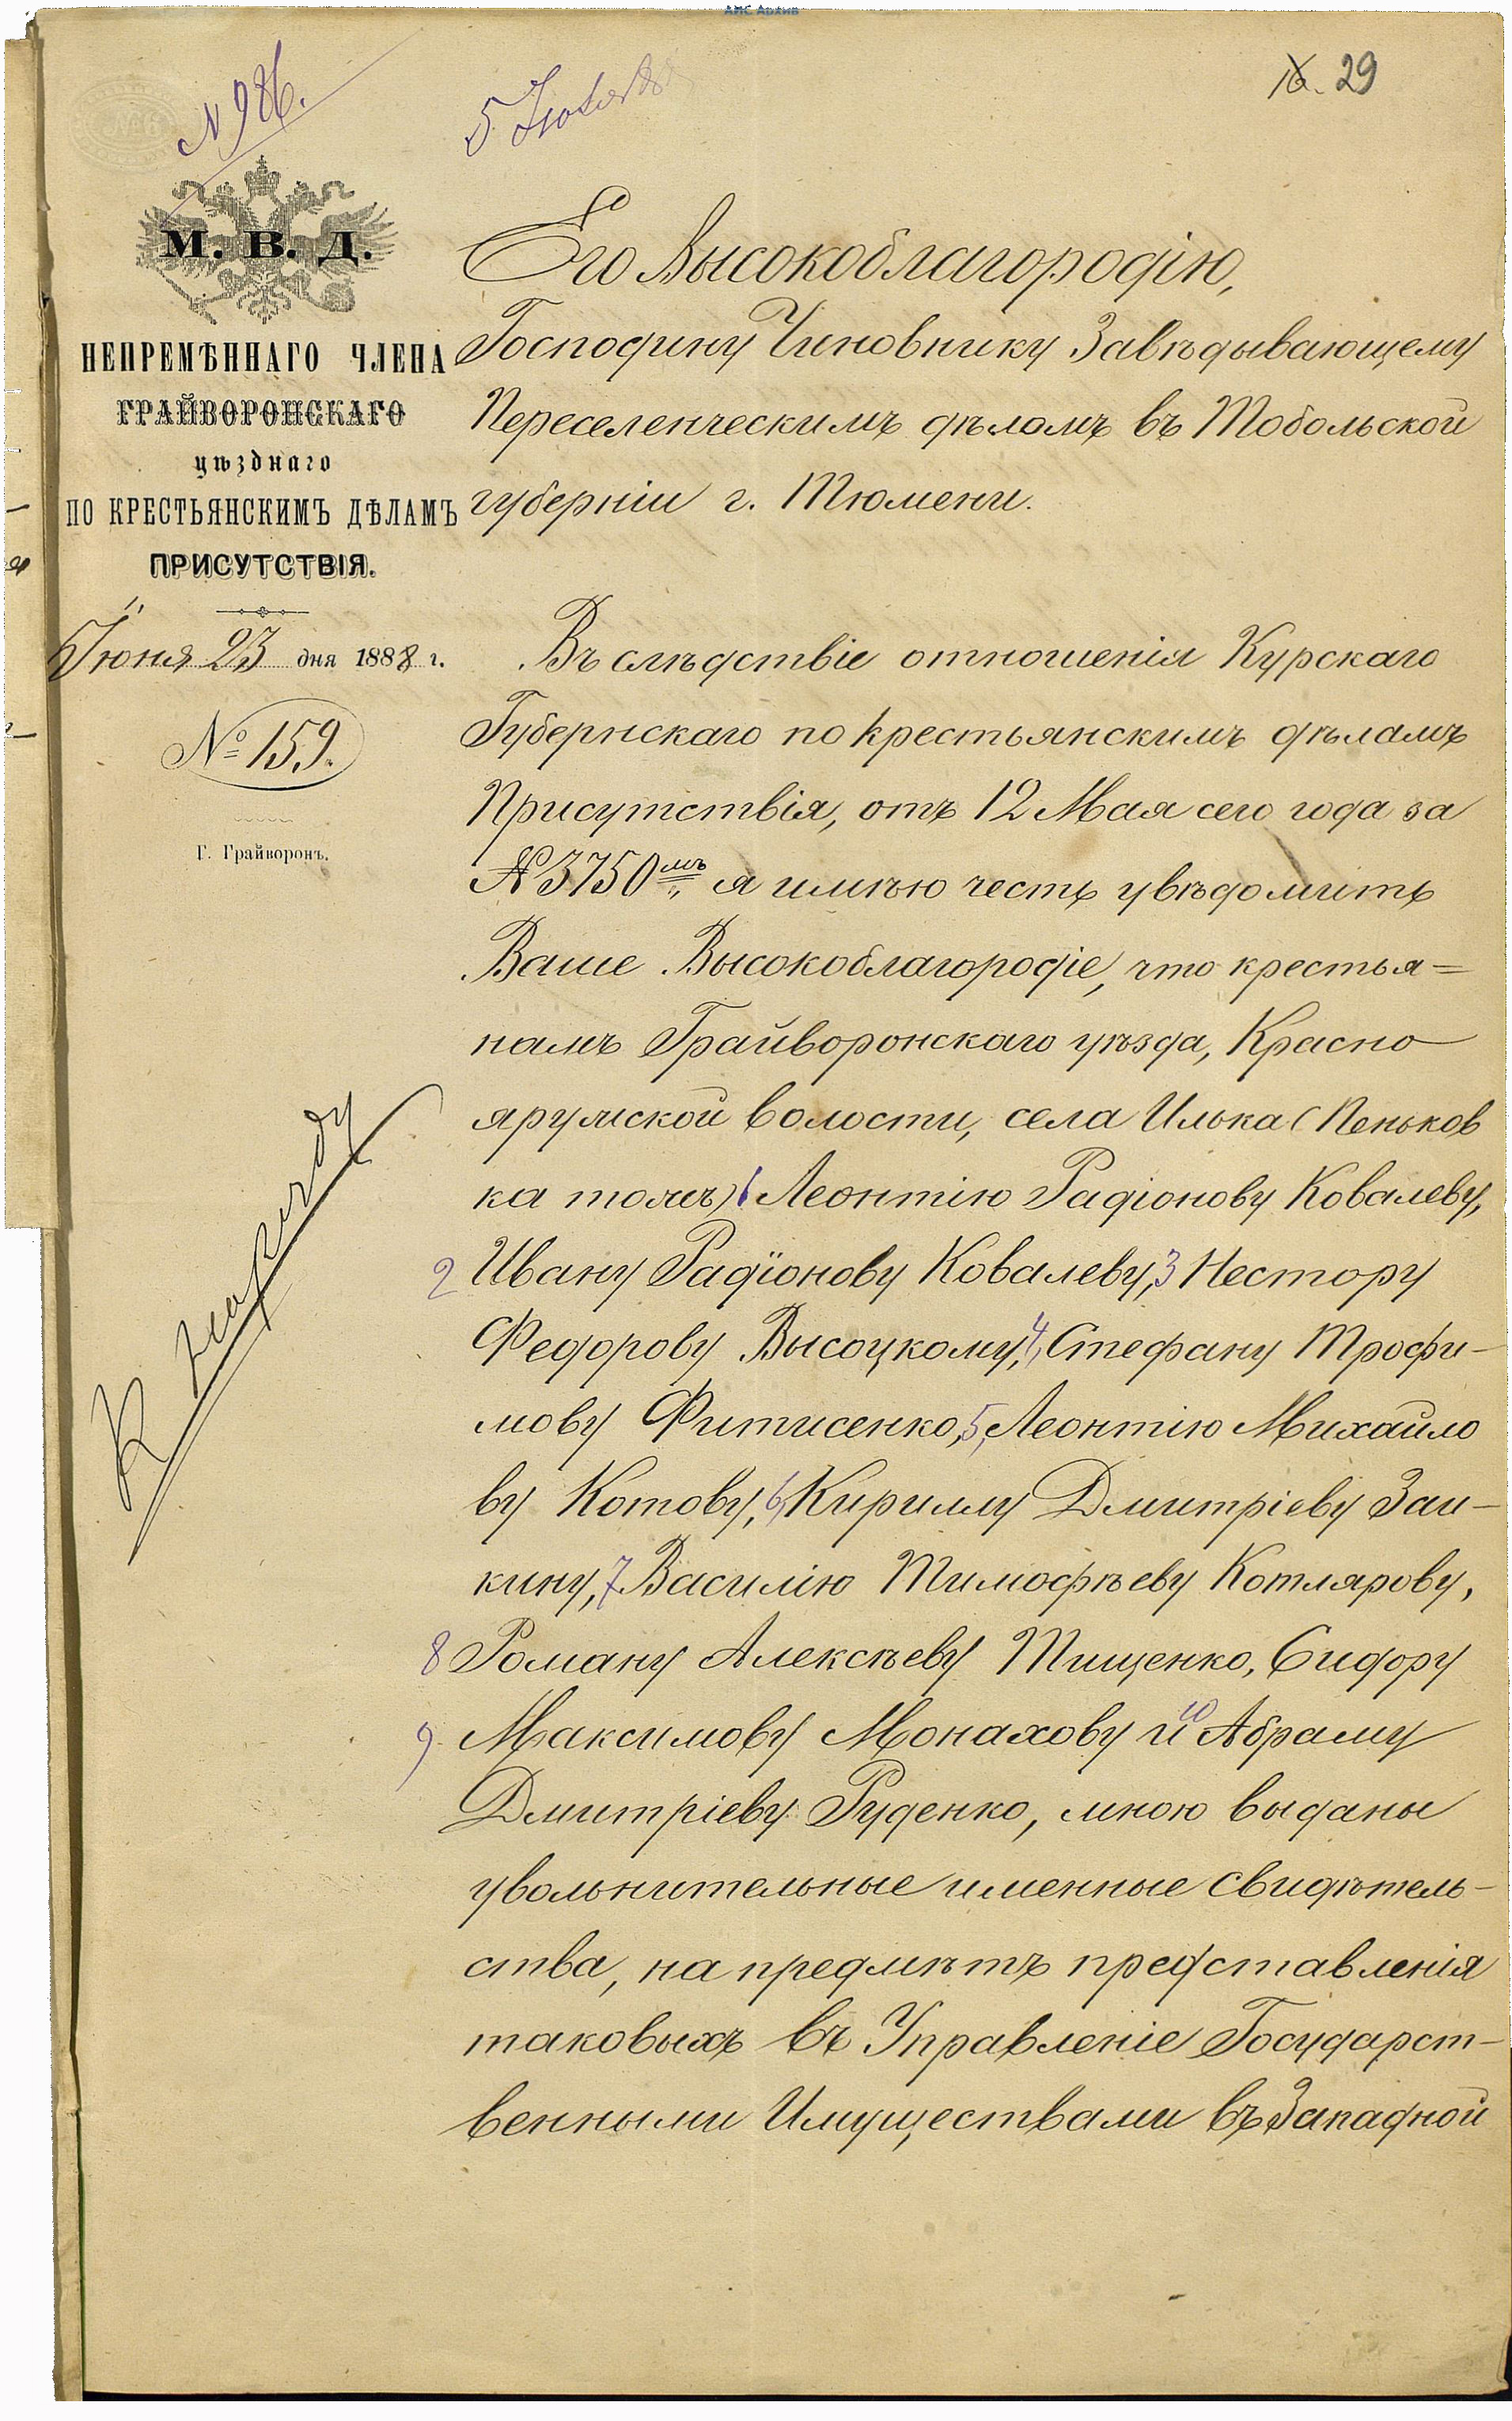 АИС Архив
16. 29
N 986.
5 Іюля 88
М. В. Д.
НЕПРЕМѢННАГО ЧЛЕНА
ГРАЙВОРОНСКАГО
уѣзднаго
ПО КРЕСТЬЯНСКИМЪ ДѢЛАМЪ
ПРИСУТСТВІЯ.
Іюня 23 дня 1888 г.
№ 159.
Г. Грайворонъ.
К наряду
Его Высокоблагородію,
Господину Чиновнику Завѣдывающему
Переселенческимъ дѣломъ въ Тобольской
губерніи г. Тюмени.
Въ слѣдствіе отношенія Курскаго
Губернскаго по крестьянскимъ дѣламъ
Присутствія, отъ 12 Мая сего года за
№ 3750мъ, я имѣю честь увѣдомить
Ваше Высокоблагородіе, что крестья=
намъ Грайворонскаго уѣзда, Красно
яружской волости, села Илька (Пеньков
ка тожъ) 1 Леонтію Радіонову Ковалеву,
2 Ивану Радіонову Ковалеву, 3 Нестору
Федорову Высоцкому, 4, Стефану Трофи-
мову Фитисенко, 5, Леонтію Михайло
ву Котову, 6, Кириллу Дмитріеву Заи-
кину, 7 Василію Тимофѣеву Котлярову,
8 Роману Алексѣеву Тищенко, Сидору
9 Максимову Монахову и 10 Абраму
Дмитріеву Руденко, мною выданы
увольнительные именные свидѣтель-
ства, на предмѣтъ представленія
таковыхъ въ Управленіе Государст-
венными Имуществами въ Западной